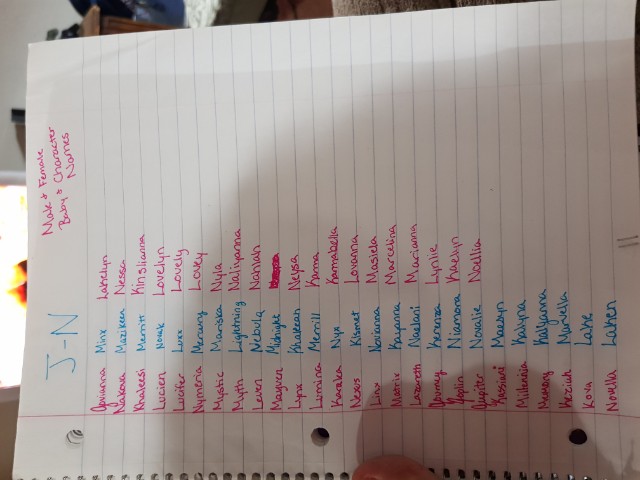 J-N
Male & Female
Baby & Character
Names
Jovianna Minx Lakelyn
Nakova Mazikeen Nessa
Khaleesi Merritt Kinslianna
Lucien Novak Lovelyn
Lucifer Luxx Lovely
Nymeria Mercury Lovey
Mystic Mariska Nyla
Myth Lightning Naliyanna
Leven Nebula Nariah
Midnight
Lynx Khaleean Neysa
Lumina Merrill Kama
Karaka Nyx Kamabella
Nexus Kismet Lovanna
Jinx Novianna Masiela
Matrix Kaiyanna Marcelina
Lazareth Nashari Mariana
Journey Kerenza Lynlie
Joplin Niamora Kaelyn
Jupiter Novalie Noellia
Maezyn
Millenia Kalyna
Memory Kalyanna
Keziah Marvella
Kova Lake
Novella Laken